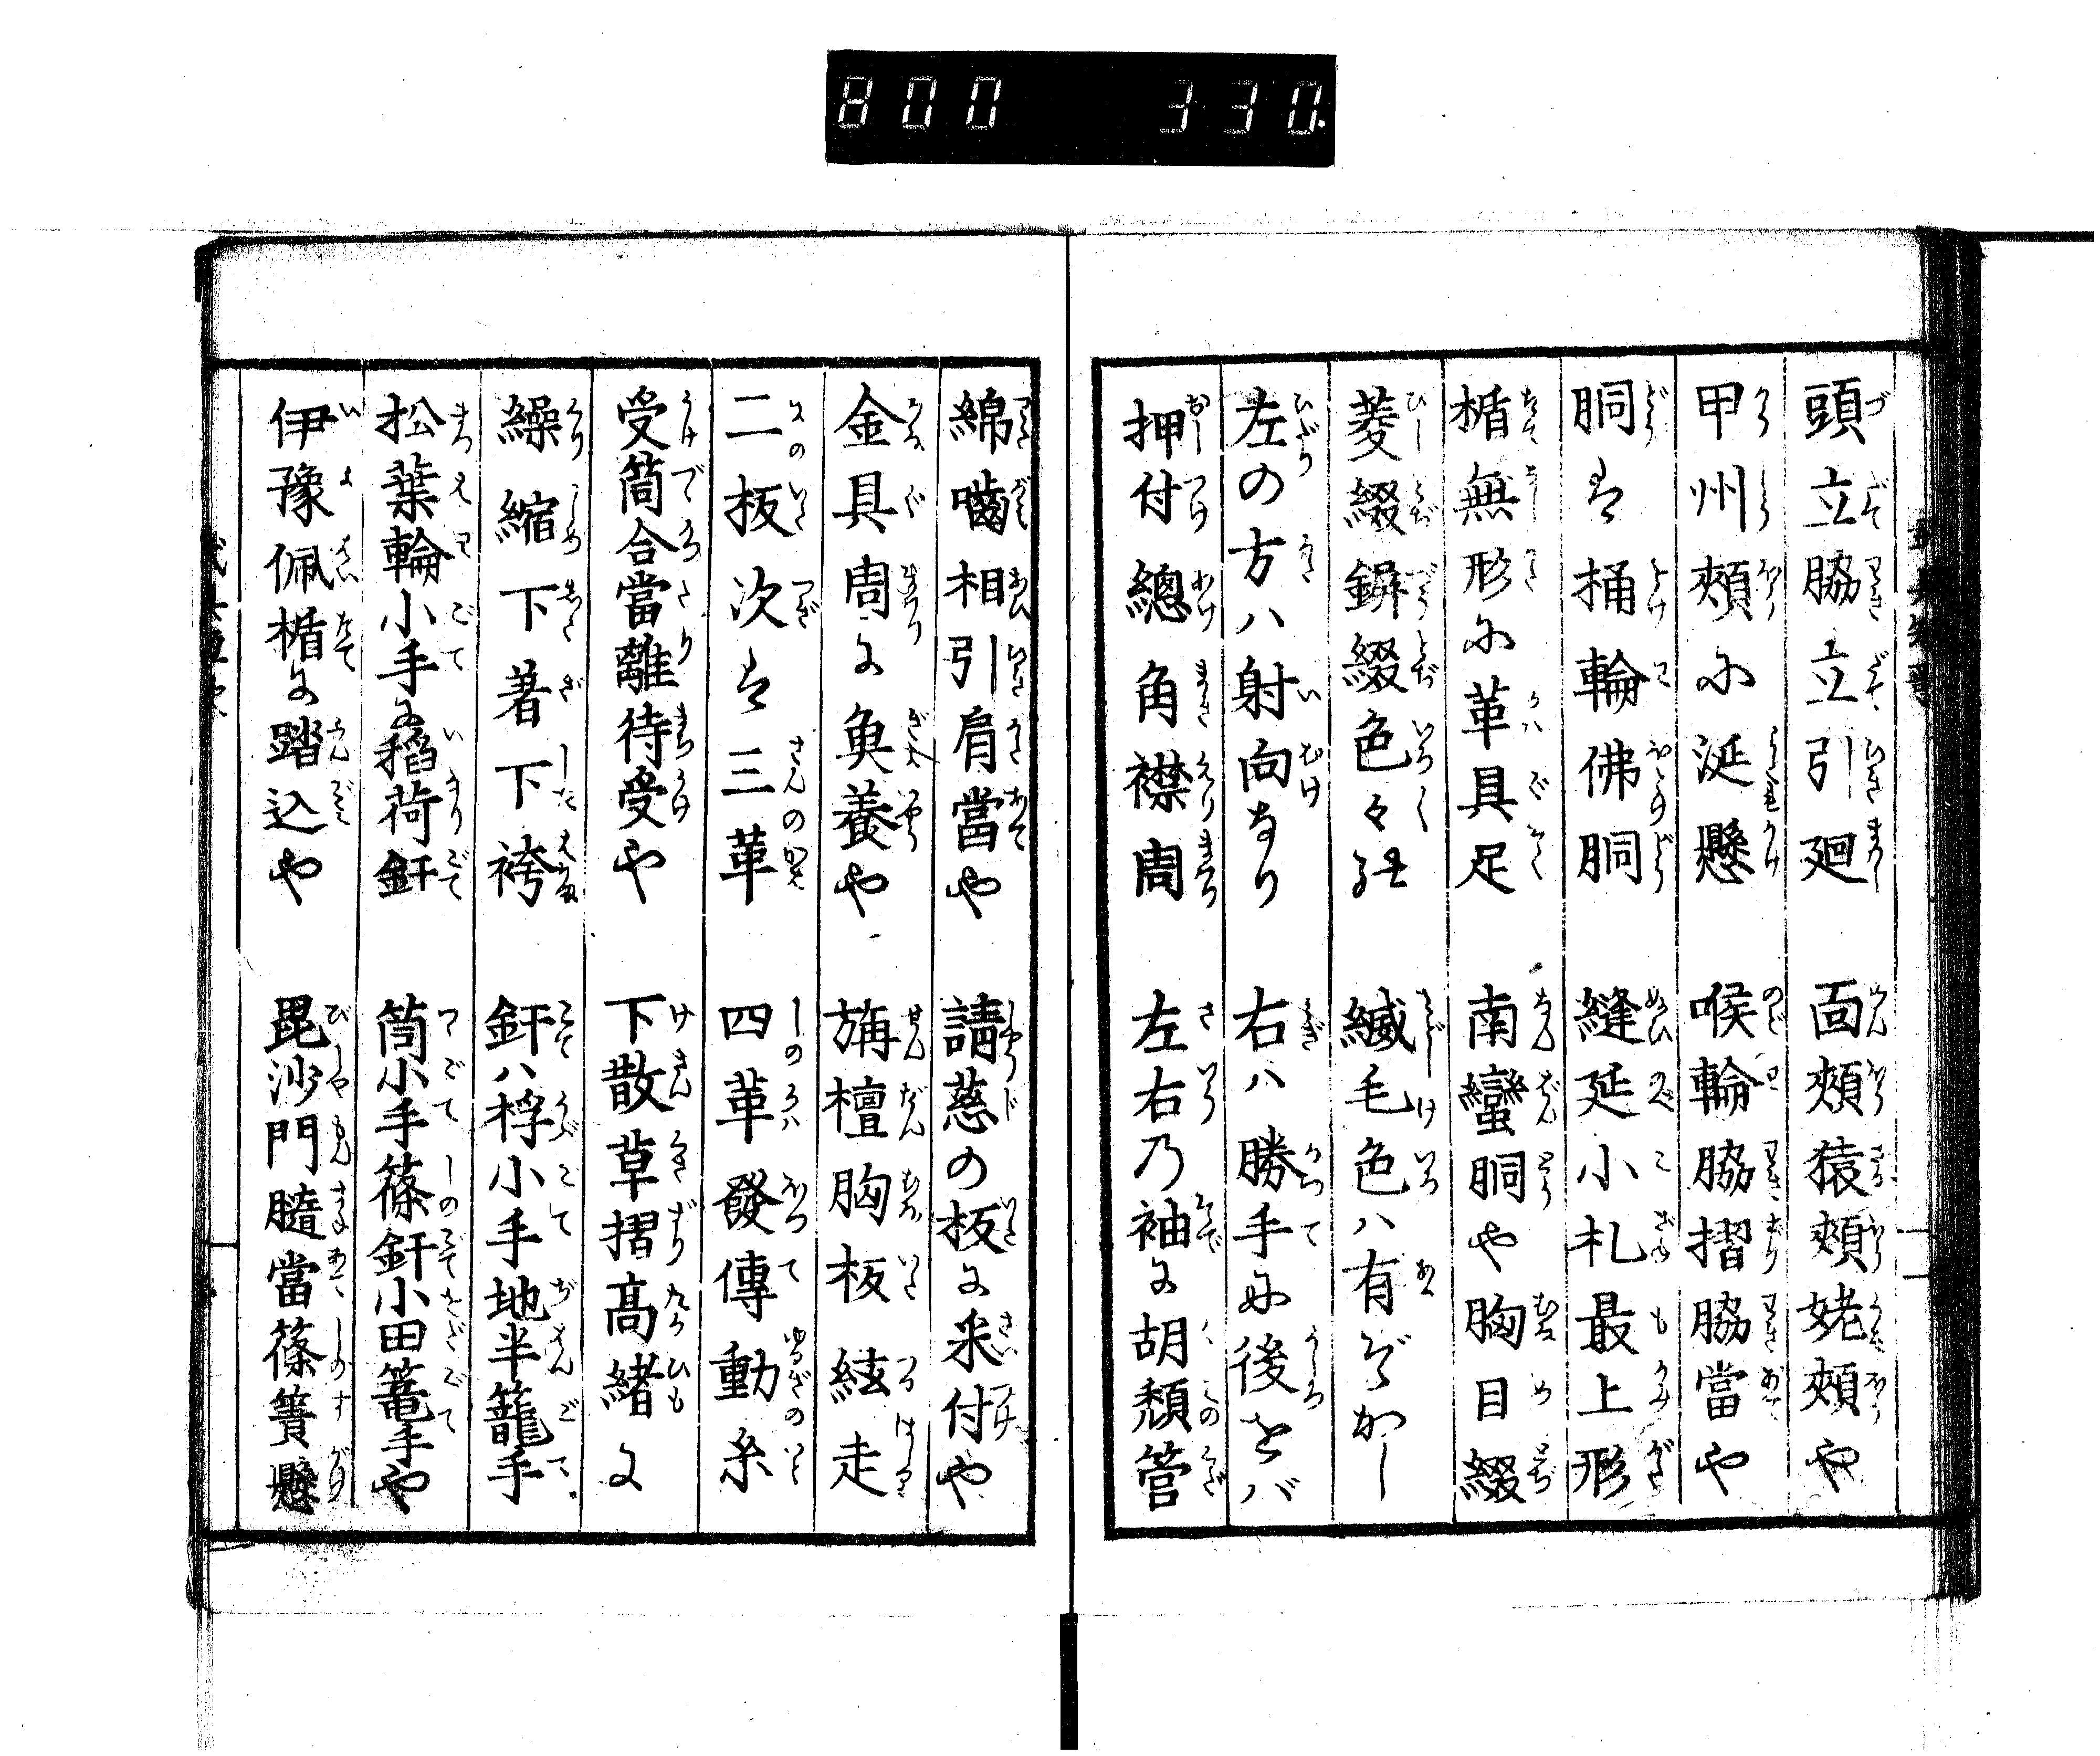 800 330
頭立脇立引廻 面頬猿頬姥頬や
甲州頬に涎懸 喉輪脇摺脇當や
胴は桶輪佛胴 縫延小札最上形
楯無形に革具足 南蠻胴や胸目綴
菱綴鋲綴色々 縅毛色ハ有ぞかし
左の方ハ射向なり 右ハ勝手に後をバ
押付總角襟周 左右乃袖に胡頽管
綿嚙相引肩當や 請慈の板に采付や
金具周に奥養や 栴檀胸板絃走
二板次は三革 四革發傳動糸
受筒合當離待受や 下散草摺髙緒に
繰縮下著下袴 釬ハ桴小手地半籠手
松葉輪小手に稻荷釬 筒小手篠釬小田篭手や
伊豫佩楯に踏込や 毘沙門髄當篠簀懸